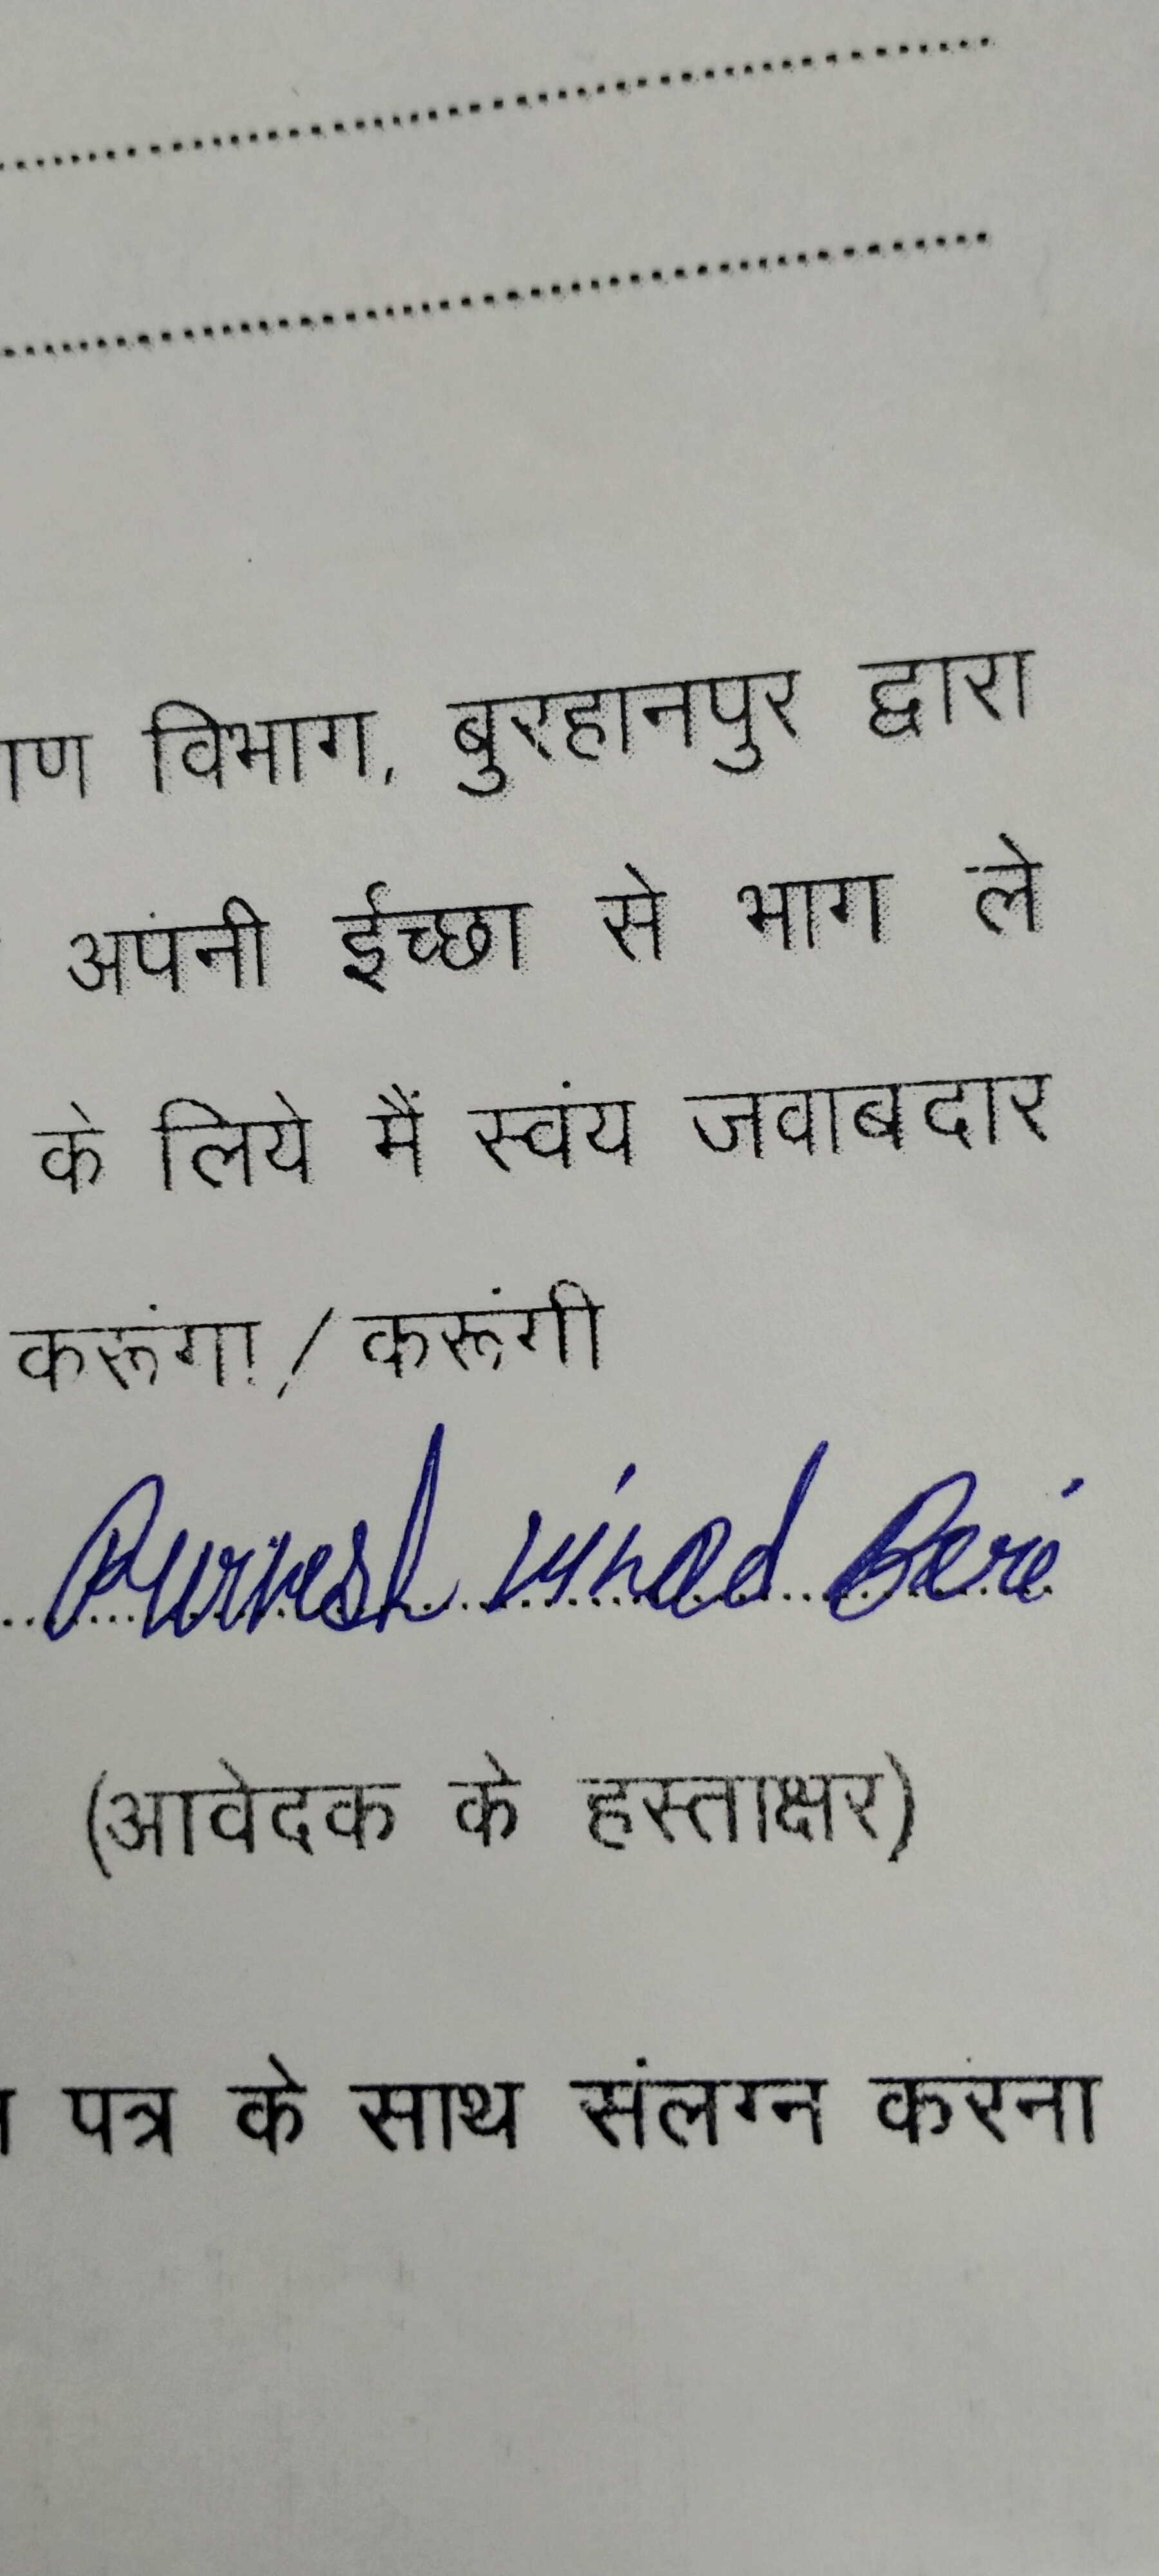 ाण विभाग, बुरहानपुर द्वारा
अपंनी ईच्छा से भाग ले
के लिये मैं स्वंय जवाबदार
करूंगा / करूंगी
Purvesh vinod Bere
(आवेदक के हस्ताक्षर)
पत्र के साथ संलग्न करना